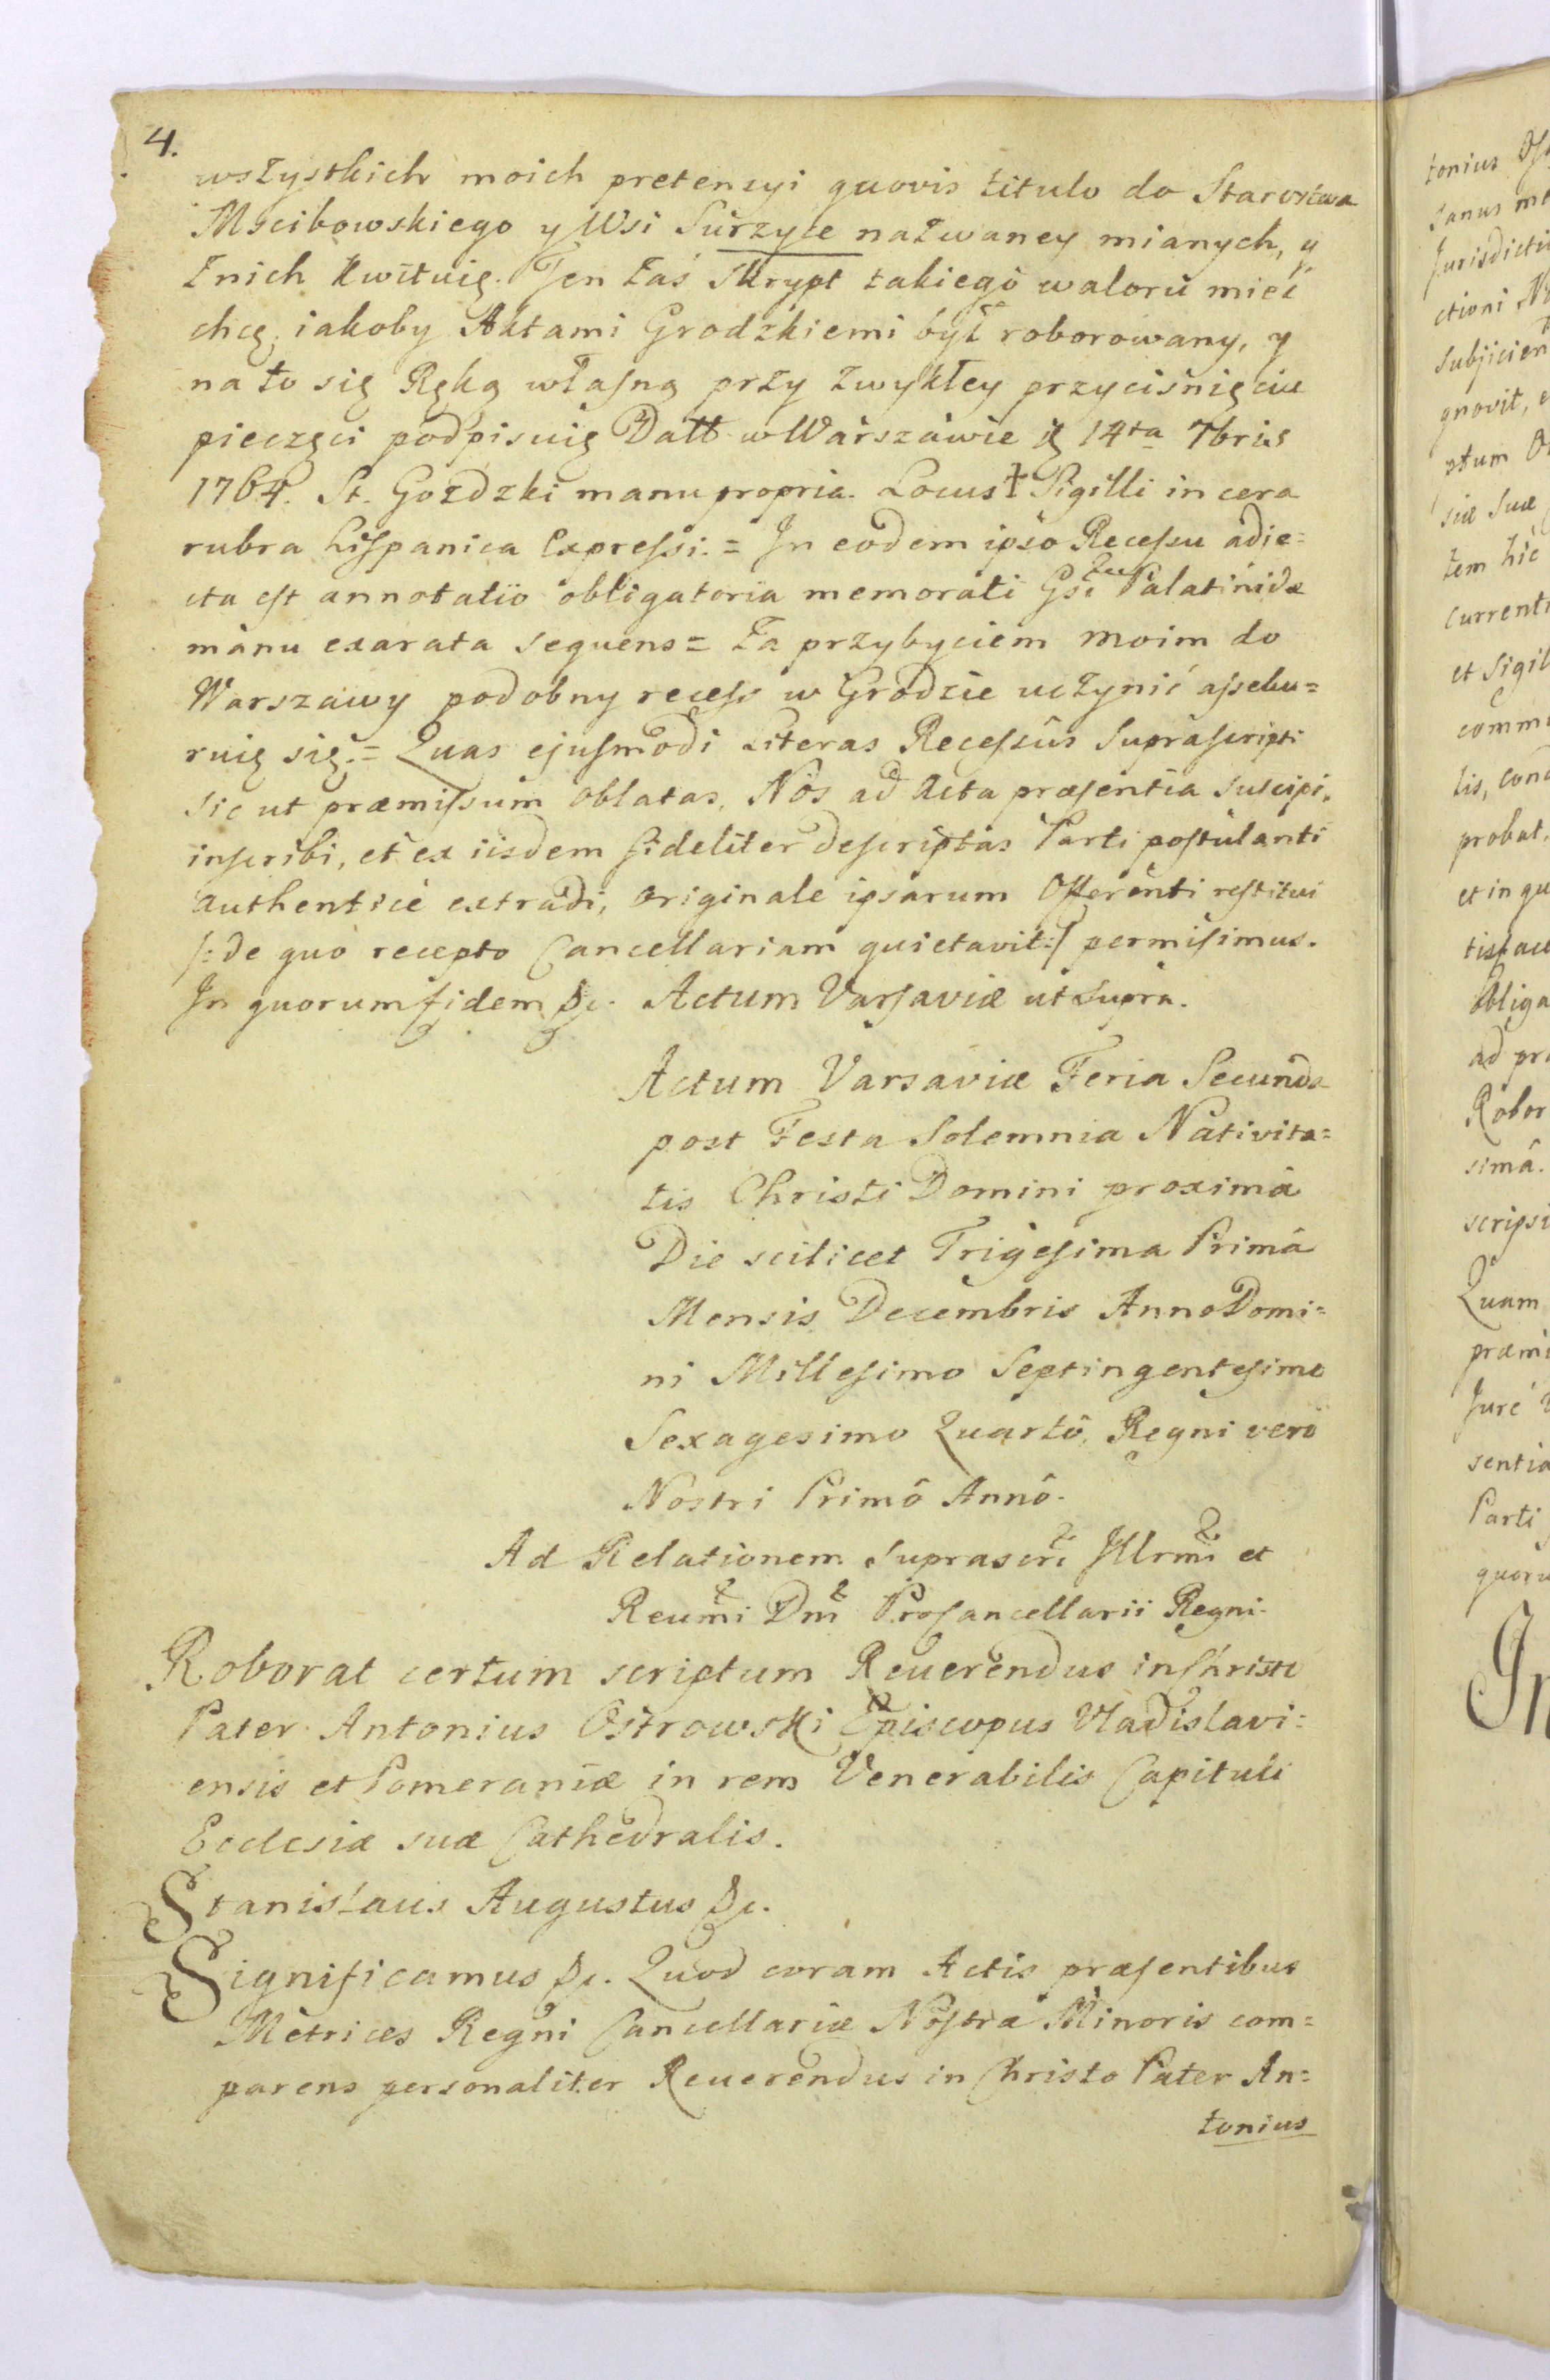 4.
wszystkich moich pretensyi quovis titulo do Starostwa
Mscibowskiego y Wsi Surzyce nazwaney mianych, y
z nich kwituię. Ten zaś Skrypt takiego waloru mieć
chcę, iakoby Aktami Grodzkiemi był roborowany, y
na to się Ręką własną przy zwykłey przyciśnięciu
pieczęci podpisuię Datt w Warszawie 14ta 7bris
1764. St. Gozdzki manu propria. Locus † Sigilli in cera
rubra hispanica Expressi. = In eodem ipso Recessu adie=
cta est annotatio obligatoria memorati Gsi Palatinidæ
manu exarata sequens = Za przybyciem moim do
Warszawy podobny recess w Grodzie uczynić asseku=
ruię się. = Quas ejusmodi Literas Recessûs Suprascripti
sic ut præmissum oblatas, Nos ad Acta præsentia suscipi,
inscribi, et ex iisdem fideliter descriptas Parti postulanti
authenticè extradi, originale ipsarum Offerenti restitui
/: de quo recepto Cancellariam quietavit :/ permisimus.
In quorum fidem &c. Actum Varsaviæ ut supra.
Actum Varsaviæ Feria Secunda
post Festa Solemnia Nativita=
tis Christi Domini proximâ
Die scilicet Trigesima Primâ
Mensis Decembris Anno Domi=
ni Millesimo Septingentesimo
Sexagesimo Quartô, Regni verô
Nostri Primô Annô.
Ad Relationem suprascri Illrmi et
Reumi Dni Procancellarii Regni.
Roborat certum scriptum Reuerendus in Christo
Pater Antonius Ostrowski Episcopus Vladislavi=
ensis et Pomeraniæ in rem Venerabilis Capituli
Ecclesiæ suæ Cathedralis.
Stanislaus Augustus &c.
Significamus &c. Quod coram Actis præsentibus
Metrices Regni Cancellariæ Nostræ Minoris com=
parens personaliter Reuerendus in Christo Pater An=
tonius
tonius
Jurisdicti
ctioni
subjicien
gnovit,
suæ
tem hic
currenti
et Sigil
lis,
probat,
et in qu
Obliga
ad
Robor
simâ.
scripsi
Quam
præmi
Jure
sentia
Parti
quoru
In